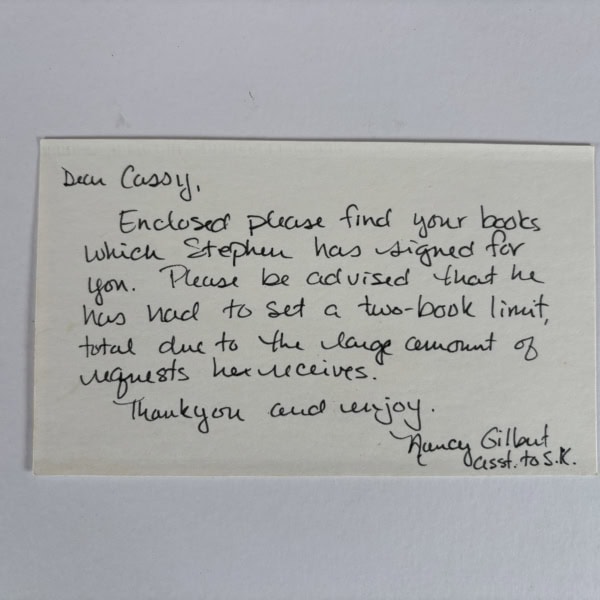 Dear Cassy,
Enclosed please find your books
which Stephen has signed for
you. Please be advised that he
has had to set a two-book limit,
total due to the large amount of
requests he receives.
Thankyou and enjoy.
Nancy Gilbert
asst. to S.K.